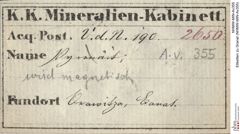 K. K. Mineralien-Kabinett.
Acq. Post. V.d.N. 190. 2650
Name Pyrantit, A.v. 355
wird magnetisch
Fundort Orawitza, Banat.